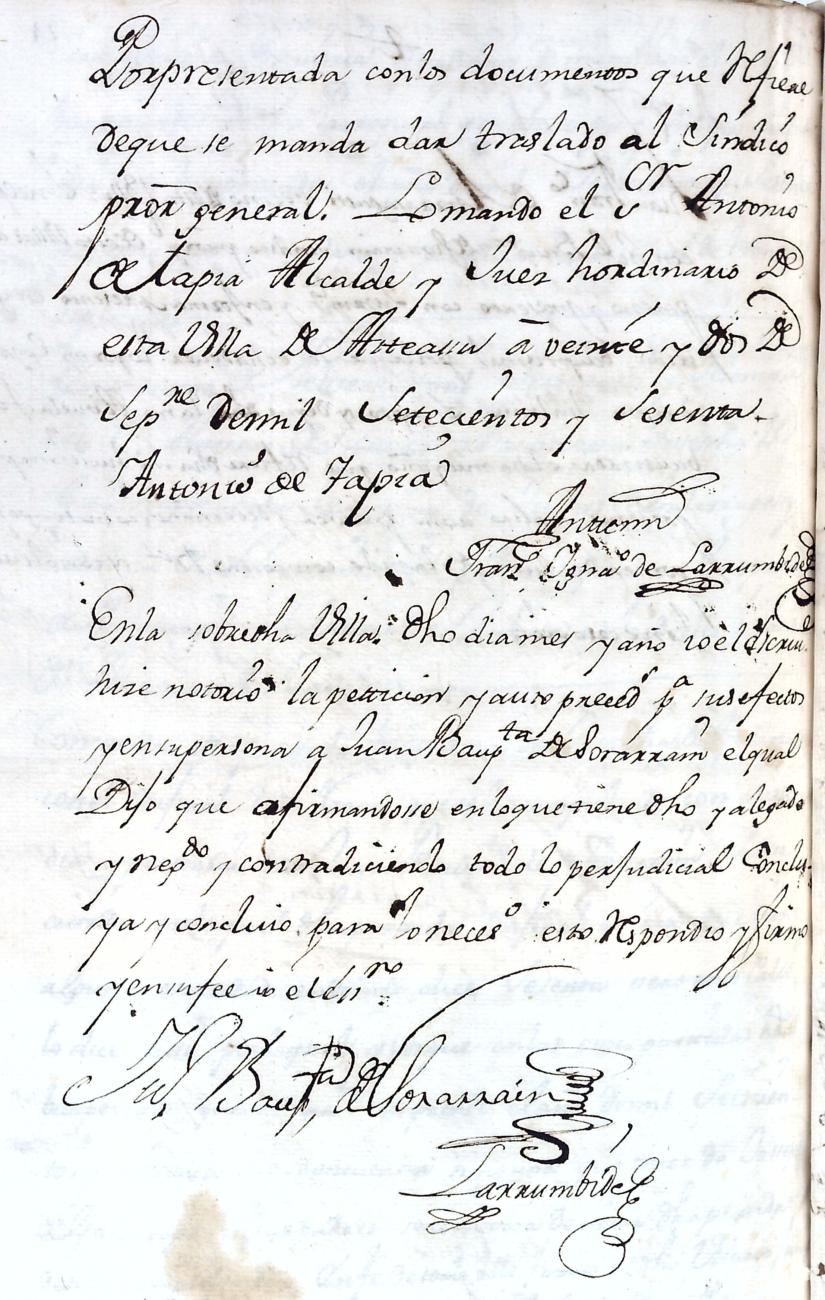 Porpresentada conlos documentos que Refiere
deque se manda dar traslado al Sindico
pror general. Lo mando el Sr Antonio
de tapia Alcalde y Juez hordinario De
esta Villa de Asteasu a veinte y dos De
Sepre demil Setecientos y Sesenta.
Antonio de Tapia
Antemi
Franco Ignao de Larrumbide
Enla sobredha Villa dho dia mes y año io el escriu
hize notorio la peticion y auto preced pa sus efectos
y ensupersona a Juan Baupta de Sorarrain el qual
Dijo que afirmandosse enloquetiene dho y alegado
y nepdo y contradiciendo todo lo perjudicial Conclu
ya y concluio para loneceso esto Respondio y firmo
y ensufee io el essno
Jn Baupta de Sorarrain
Larrumbide